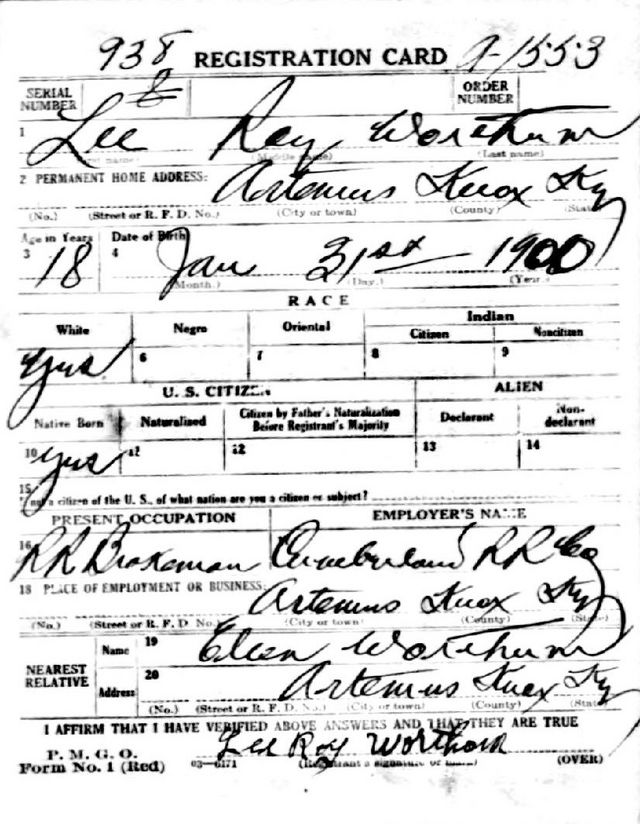 938 REGISTRATION CARD A-1553
SERIAL NUMBER
ORDER NUMBER
1 Lee Ray Worthum
(First name) (Middle name) (Last name)
2 PERMANENT HOME ADDRESS: Artemus Knox Ky
(No.) (Street or R. F. D. No.) (City or town) (County) (State)
Age in Years Date of Birth
3 18 4 Jan 31st 1900
(Month.) (Day.) (Year.)
RACE
White Negro Oriental Indian
Citizen Noncitizen
yes 6 7 8 9
U. S. CITIZEN ALIEN
Native Born Naturalized Citizen by Father's Naturalization Before Registrant's Majority Declarant Non-declarant
10 yes 11 12 13 14
15
not a citizen of the U. S., of what nation are you a citizen or subject?
PRESENT OCCUPATION EMPLOYER'S NAME
16 RR Brakeman Cumberland RR Co
18 PLACE OF EMPLOYMENT OR BUSINESS:
Artemus Knox Ky
(No.) (Street or R. F. D. No.) (City or town) (County) (State)
NEAREST RELATIVE Name 19 Worthum
Address 20 Artemus Knox Ky
(No.) (Street or R. F. D. No.) (City or town) (County) (State)
I AFFIRM THAT I HAVE VERIFIED ABOVE ANSWERS AND THAT THEY ARE TRUE
P. M. G. O. Lee Roy Worthum
Form No. 1 (Red) 03—6171 (Registrant's signature or mark) (OVER)